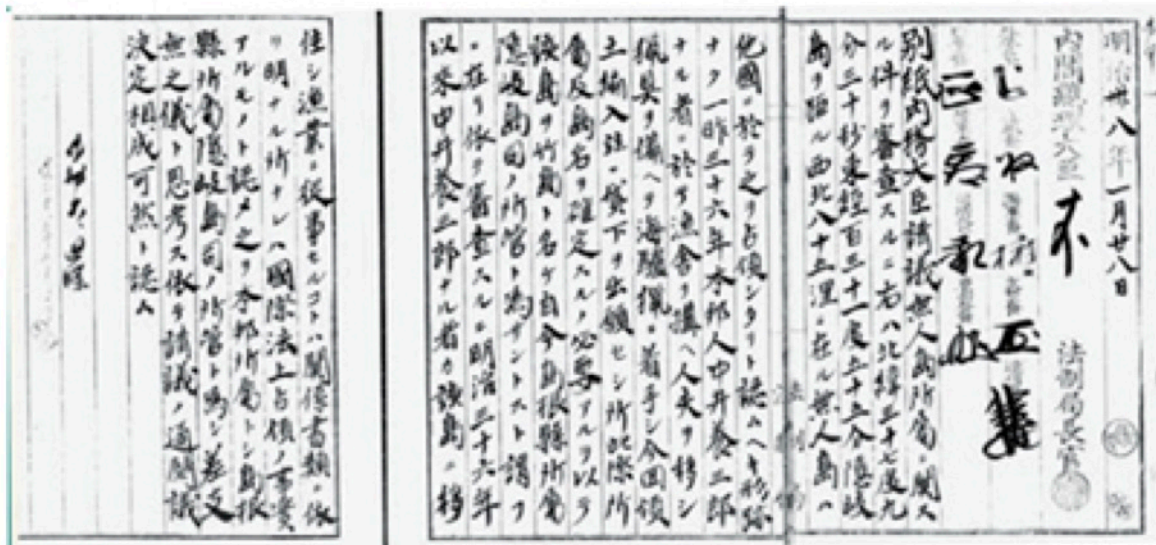 明治卅八年一月廿八日
内閣總理大臣
法制局長官
別紙内務大臣請議無人島所屬ニ関ス
ル件ヲ審査スルニ右ハ北緯三十七度九
分三十秒東經百三十一度五十五分隠岐
島ヲ距ル西北八十五浬ニ在ル無人島ハ
他國ニ於テ之ヲ占領シタリト認ムヘキ形跡
ナク一昨三十六年本邦人中井養三郎
ナル者ニ於テ漁舎ヲ構ヘ人夫ヲ移シ
猟具ヲ備ヘテ海驢猟ニ着手シ今回領
土編入並ニ貸下ヲ出願セシ所此際所
屬及島名ヲ確定スルノ必要アルヲ以テ
該島ヲ竹島ト名ケ自今島根縣所屬
隠岐島司ノ所管ト為サントスト謂フ
ニ在リ依テ審査スルニ明治三十六年
以来中井養三郎ナル者カ該島ニ移
住シ漁業ニ従事セルコトハ関係書類ニ依
リ明ナル所ナレハ國際法上占領ノ事実
アルモノト認メ之ヲ本邦所屬トシ島根
縣所屬隠岐島司ノ所管ト為シ差支
無之儀ト思考ス依テ請議ノ通閣議
決定相成可然ト認ム
法制局